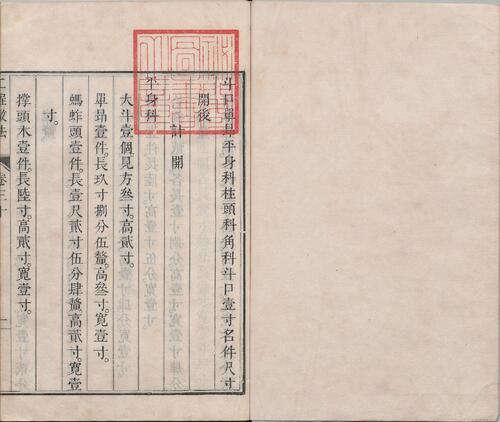 斗口單昂平身科柱頭科角科斗口壹寸名件尺寸
開後
計開
平身科
大斗壹個見方叁寸。高貳寸。
單昂壹件。長玖寸捌分伍釐。高叁寸。寬壹寸。
螞蚱頭壹件。長壹尺貳寸伍分肆釐。高貳寸。寬壹
寸。
撑頭木壹件。長陸寸。高貳寸。寬壹寸。
工程做法
卷三十
一